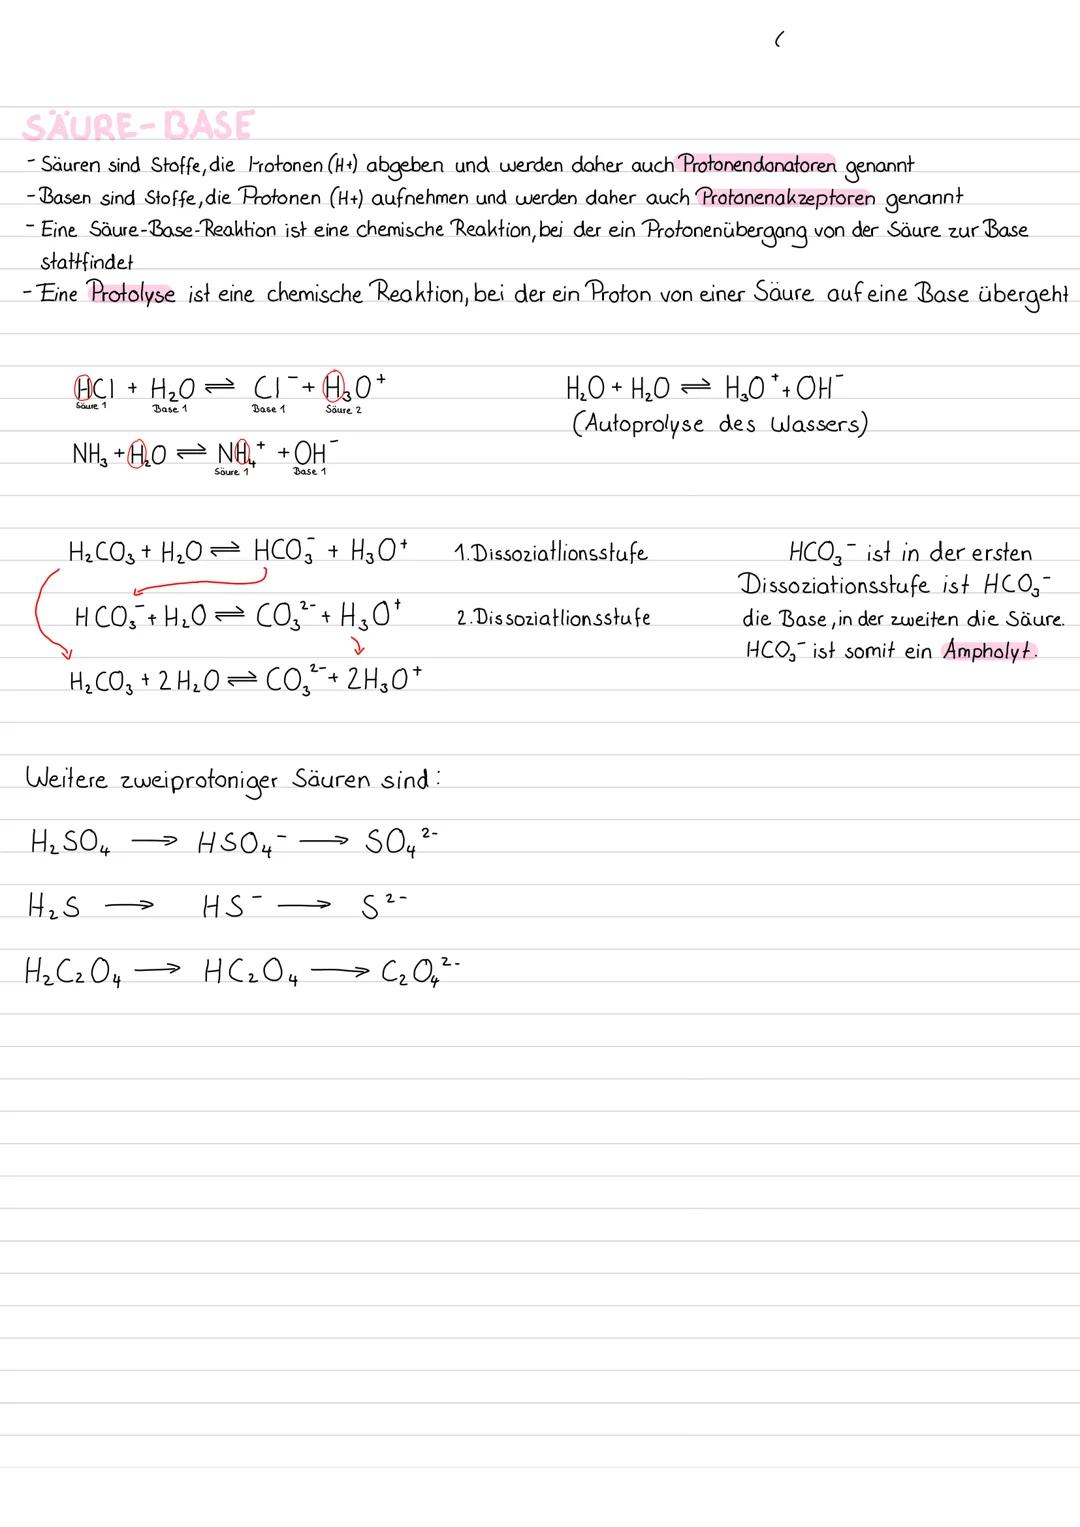 SÄURE-BASE
- Säuren sind Stoffe, die Protonen (H+) abgeben und werden daher auch Protonendonatoren genannt
- Basen sind Stoffe, die Protonen (H+) aufnehmen und werden daher auch Protonenakzeptoren genannt
- Eine Säure-Base-Reaktion ist eine chemische Reaktion, bei der ein Protonenübergang von der Säure zur Base
stattfindet
- Eine Protolyse ist eine chemische Reaktion, bei der ein Proton von einer Säure auf eine Base übergeht
HCl + H₂O ⇌ Cl⁻ + H₃O⁺
Säure 1 Base 1 Base 1 Säure 2
NH₃ + H₂O ⇌ NH₄⁺ + OH⁻
Säure 1 Base 1
H₂O + H₂O ⇌ H₃O⁺ + OH⁻
(Autoprolyse des Wassers)
H₂CO₃ + H₂O ⇌ HCO₃⁻ + H₃O⁺ 1. Dissoziatlionsstufe
HCO₃⁻ + H₂O ⇌ CO₃²⁻ + H₃O⁺ 2. Dissoziatlionsstufe
H₂CO₃ + 2 H₂O ⇌ CO₃²⁻ + 2H₃O⁺
HCO₃⁻ ist in der ersten
Dissoziationsstufe ist HCO₃⁻
die Base, in der zweiten die Säure.
HCO₃⁻ ist somit ein Ampholyt.
Weitere zweiprotoniger Säuren sind:
H₂SO₄ → HSO₄⁻ → SO₄²⁻
H₂S → HS⁻ → S²⁻
H₂C₂O₄ → HC₂O₄ → C₂O₄²⁻